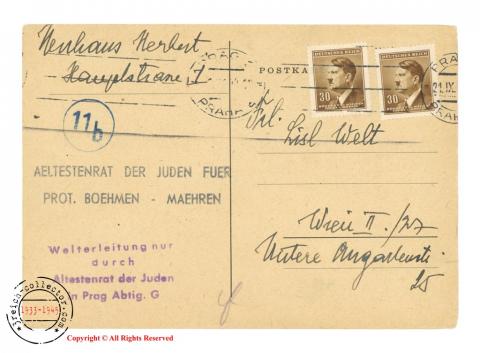 Neuhaus Herbert
Hauptstrasse 1
PRAG
PRAHA
11b
POSTKA
DEUTSCHES REICH
30
DEUTSCHES REICH
30
PRAG
1.IX.
PRAHA
Frl.
Lisl Welt
AELTESTENRAT DER JUDEN FUER
PROT. BOEHMEN - MAEHREN
Weiterleitung nur
durch
Ältestenrat der Juden
in Prag Abtlg. G
Wien II./27
Untere Augartenstr.
25
3reich-collector.com
1933-1945
Copyright © All Rights Reserved